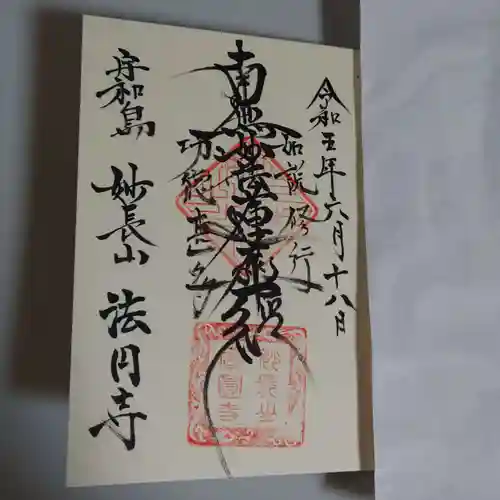 令和五年六月十八日
如説修行
南無妙法蓮華経
功徳甚多
宇和島 妙長山 法円寺